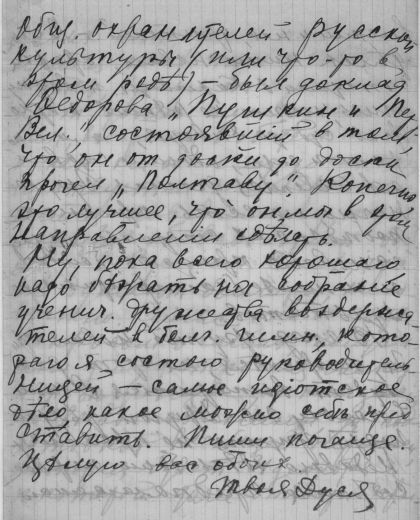 общ. охранителей русской
культуры (или что-то в
этом родѣ) – был доклад
Федорова „Пушкин и Петр
Вел.", состоявшій в том,
что он от доски до доски
прочел „Полтаву". Конечно
это лучшее, что он мог в этом
направленіи сдѣлать.
Ну, пока всего хорошаго,
надо бѣжать на собраніе
ученич. дружества воздержа
телей в белг. гимн. кото-
раго я состою руководитель
ницей – самое идіотское
дѣло какое можно себѣ пред
ставить. Пиши почаще.
Цѣлую вас обоих.
Твоя Дуся